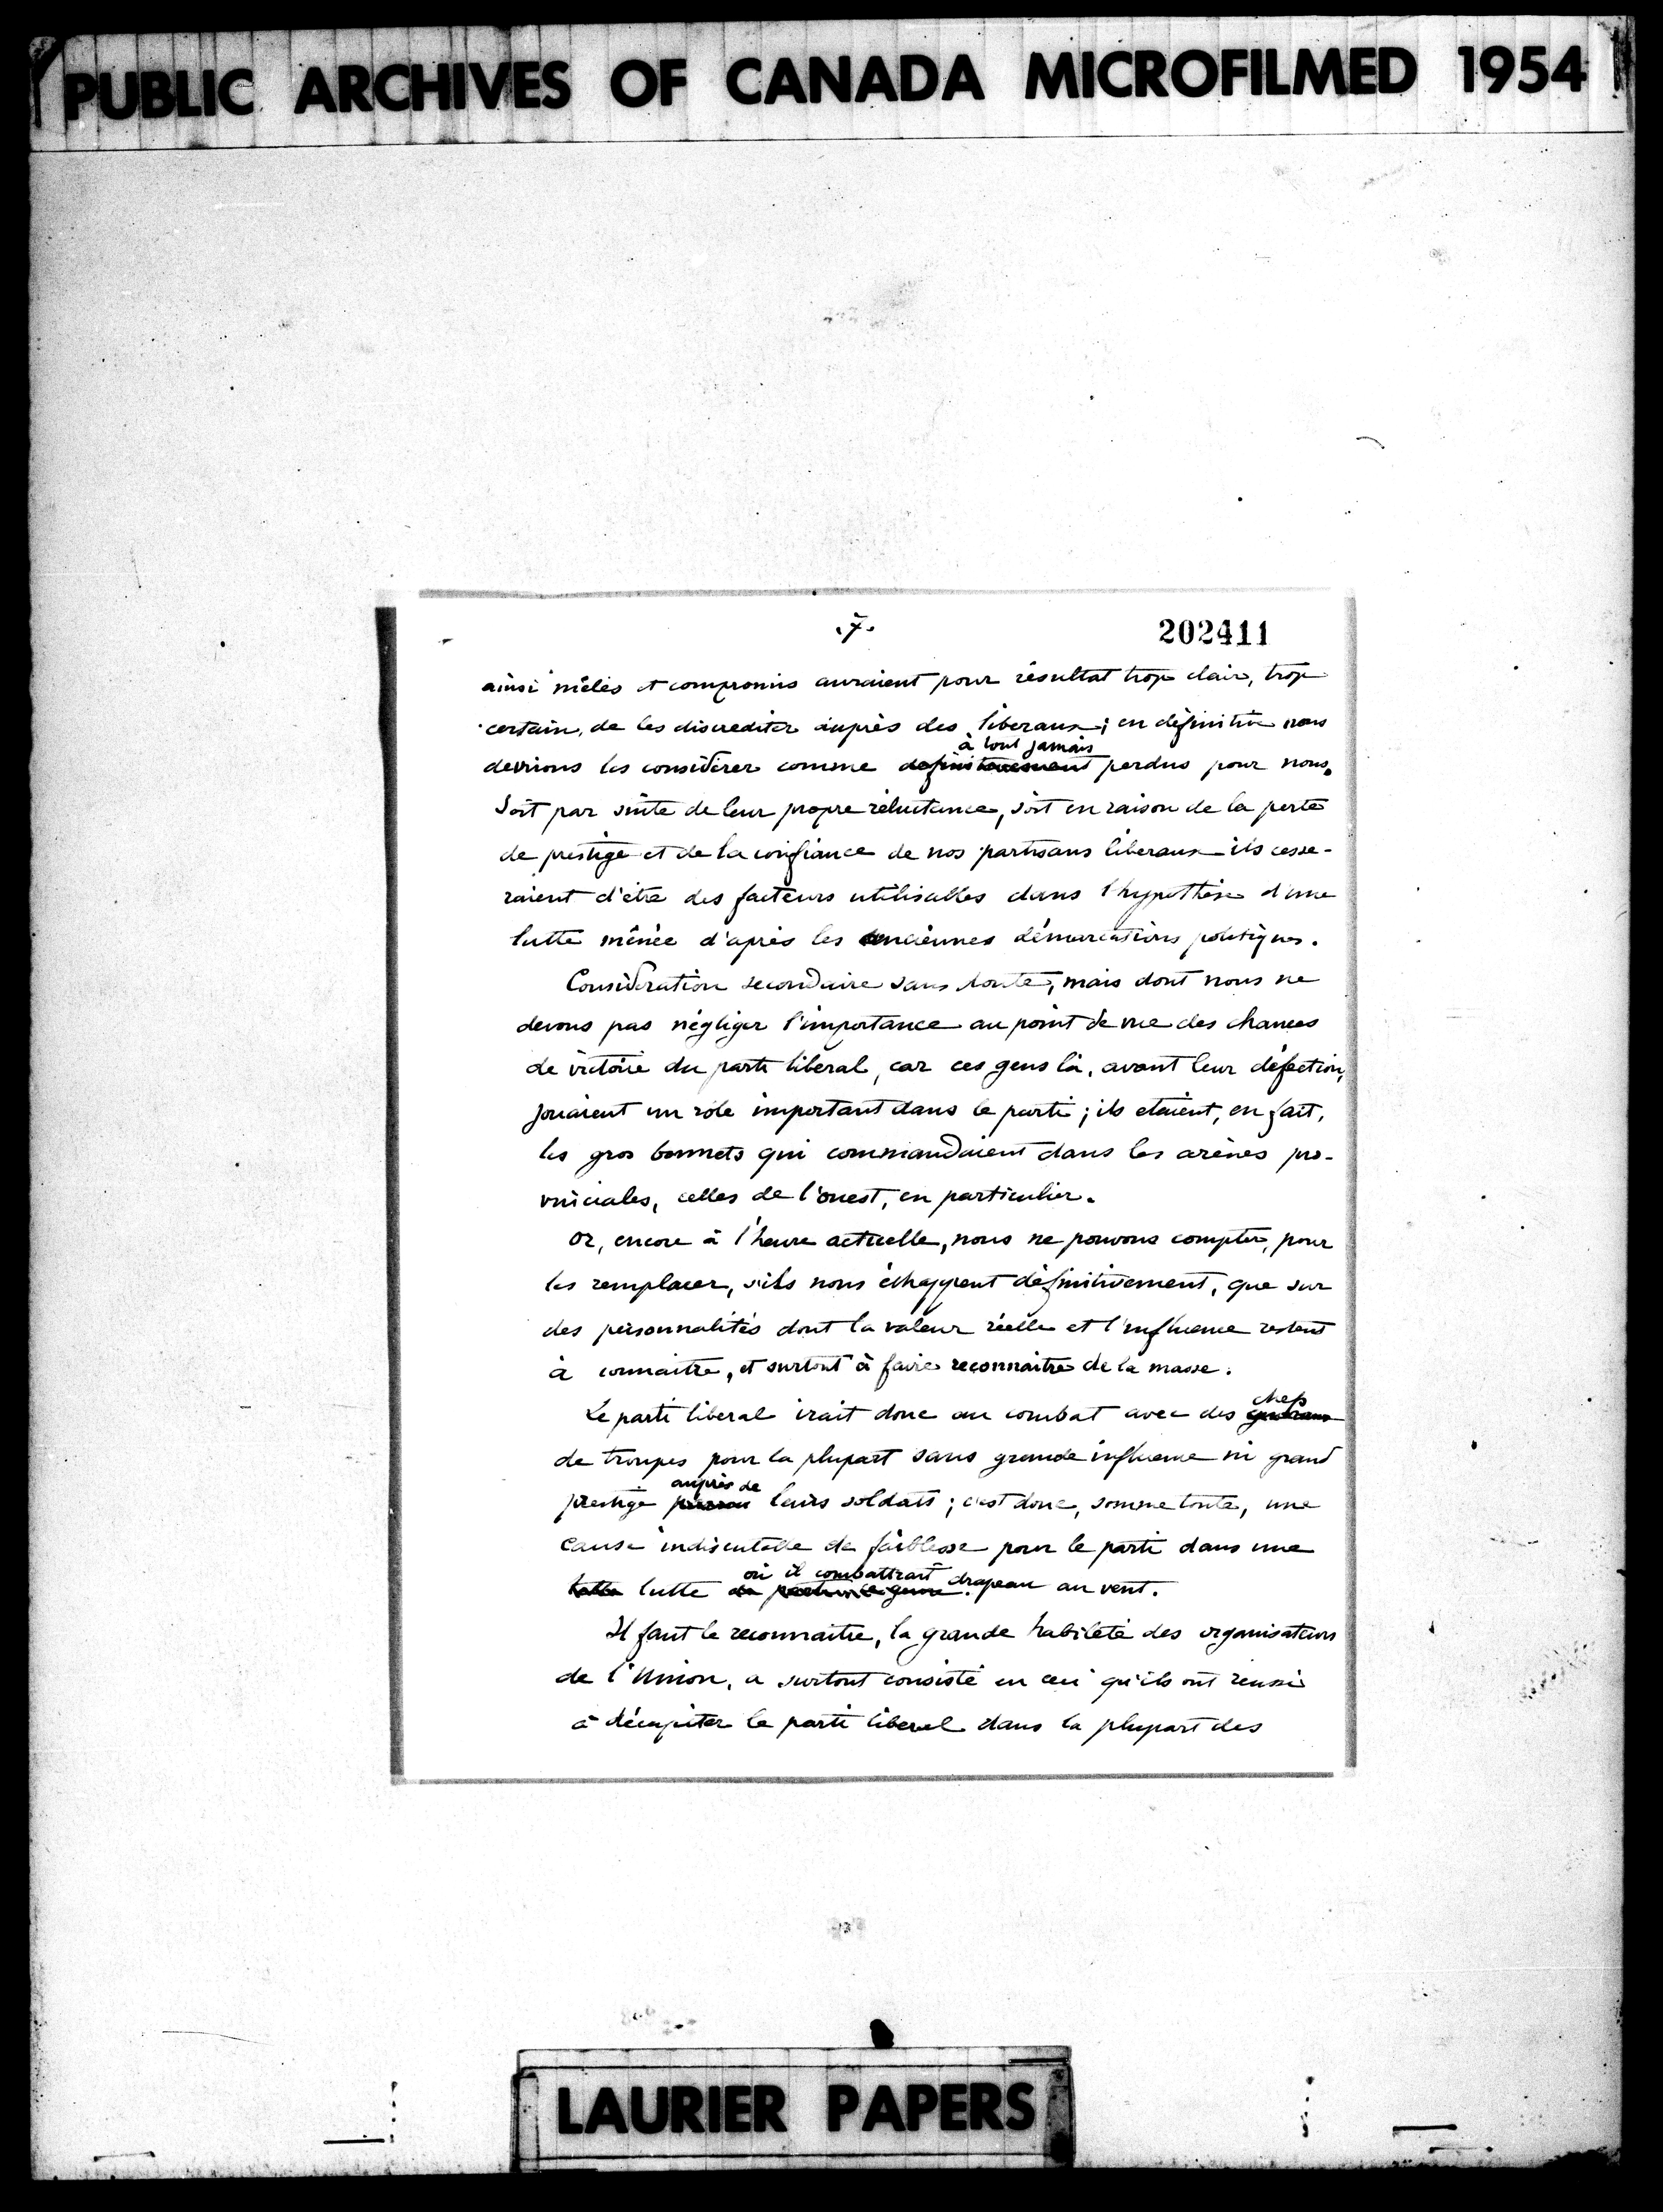 PUBLIC ARCHIVES OF CANADA MICROFILMED 1954
.7.
202411
ainsi mêlés et compromis auraient pour résultat trop clair, trop
certain, de les discrediter auprès des liberaux; en définitive nous
à tout jamais
devrions les considérer comme definitivement perdus pour nous.
Soit par suite de leur propre réluctance, soit en raison de la perte
de prestige et de la confiance de nos partisans liberaux ils cesse-
raient d'être des facteurs utilisables dans l'hypothèse d'une
lutte menée d'après les anciennes démarcations politiques.
Considération secondaire sans doute, mais dont nous ne
devons pas négliger l'importance au point de vue des chances
de victoire du parti libéral, car ces gens là, avant leur défection,
jouaient un rôle important dans le parti; ils etaient, en fait,
les gros bonnets qui commandaient dans les arènes pro-
vinciales, celles de l'ouest, en particulier.
Or, encore à l'heure actuelle, nous ne pouvons compter, pour
les remplacer, s'ils nous échappent définitivement, que sur
des personnalités dont la valeur réelle et l'influence restent
à connaitre, et surtout à faire reconnaitre de la masse.
chefs
Le parti liberal irait donc au combat avec des
de troupes pour la plupart sans grande influence ni grand
auprès de
prestige leurs soldats; c'est donc, somme toute, une
cause indiscutable de faiblesse pour le parti dans une
où il combattrait
lutte drapeau au vent.
Il faut le reconnaitre, la grande habileté des organisateurs
de l'Union, a surtout consisté en ceci qu'ils ont reussi
à décapiter le parti liberal dans la plupart des
LAURIER PAPERS